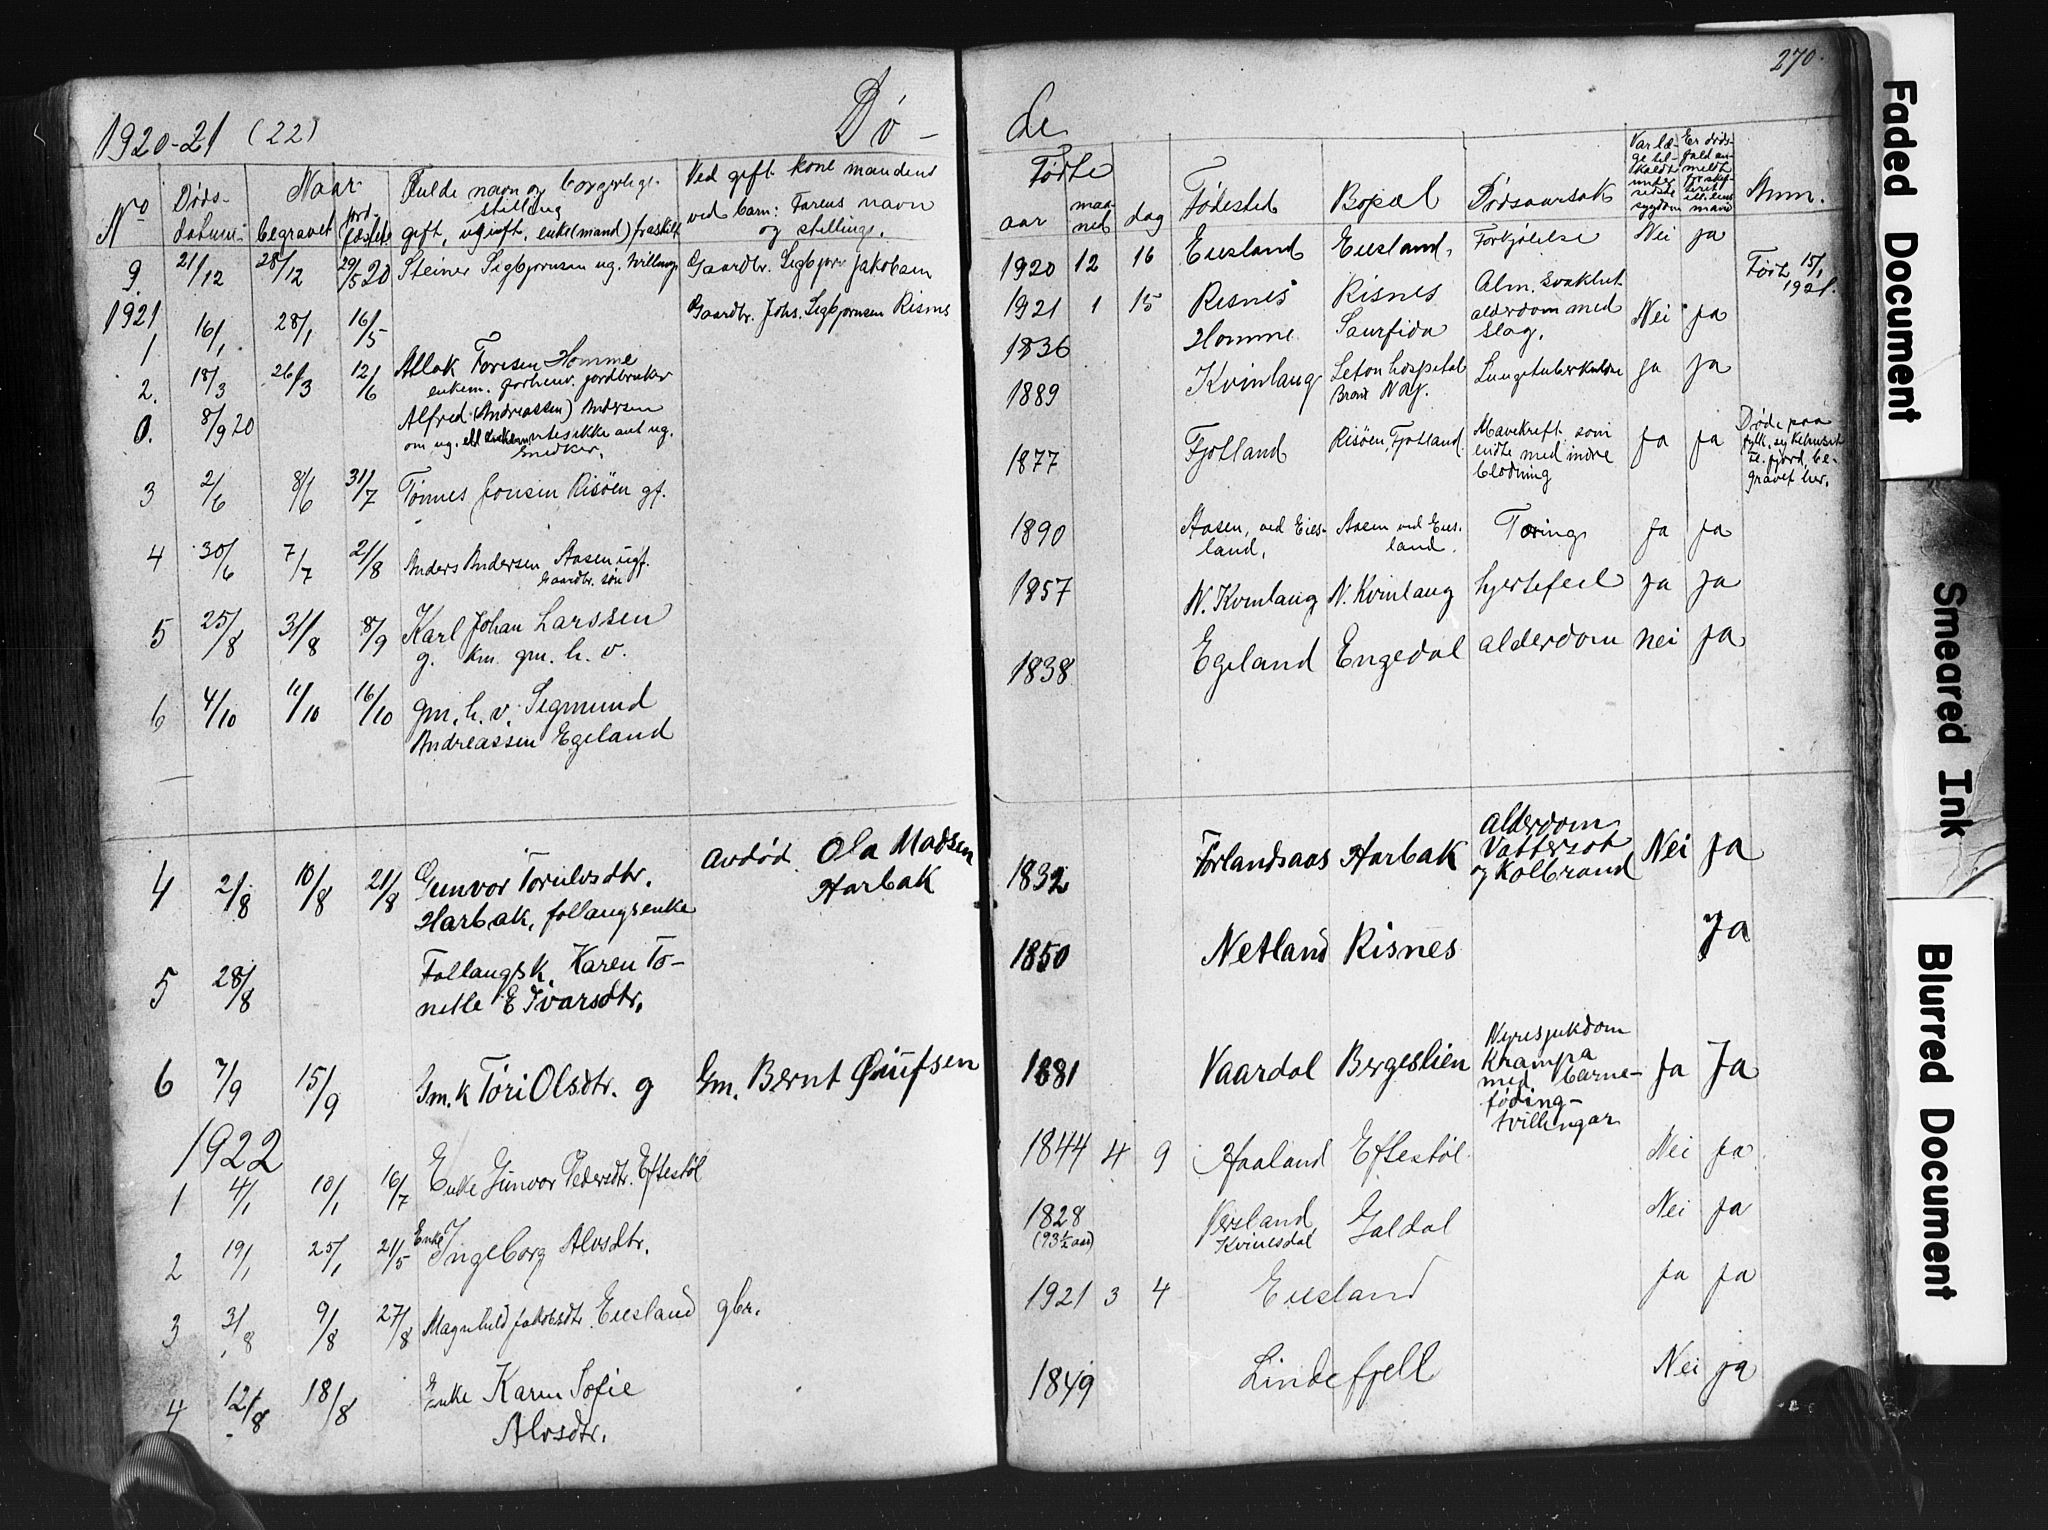 270.
1920-21 (22) Dø - de
No Døds- datum Naar begravet jord- fæstet Fulde navn og borgerlige stilling gift, ugift, enke(mand) fraskilt Ved gift kone mandens ved barn: Farens navn og stilling. Fødte aar maa- ned dag Fødested Bopæl Dødsaarsak Var læ- ge til- kaldt under sidste sygdom Er døds- fald an- meldt Anm.
9. 21/12 28/12 29/5 20 Steiner Sigbjørnsen ug. Gaardbr. Sigbjørn Jakobsen 1920 12 16 Eiesland Eiesland, Forkjølelse Nei ja
1921
1 16/1 28/1 16/5 Gaardbr. Johs. Sigbjørnsen Risnes 1921 1 15 Risnes Risnes Alm. svakhet Født 15/1 1921.
2. 18/3 26/3 12/6 Atlak Toresen Homme
enkem. forhenv. jordbruker 1836 Homme Saurfida alderdom med slag. Nei ja
0. 8/9 20 Alfred (Andreassen) Andersen
om ug. ell. enkem. vites ikke ant. ug.
Snedker. 1889 Kvinlaug Seton hospital Bronx N.Y. Lungetuberkulose ja ja
3 2/6 8/6 31/7 Tønnes Jonsen Risøen gf. 1877 Fjotland Risøen, Fjotland Mavekreft som endte med indre blødning Ja ja Døde paa fylk. sykehuset Fl. fjord, be- gravet her.
4 30/6 7/7 21/8 Anders Andersen Aasen ugf.
Gaardbr. søn 1890 Aasen, ved Eies- land. Aasen ved Eies- land. Tæring ja ja
5 25/8 31/8 8/9 Karl Johan Larssen
g. km. gm. h. v. 1857 N. Kvinlaug N. Kvinlaug hjertefeil ja ja
6 4/10 11/10 16/10 gm. h. v. Sigmund
Andreassen Egeland 1838 Egeland Engedal alderdom nei ja
4 2/8 10/8 21/8 Gunvor Torulvsdtr.
Harbak, follaugsenke Avdød. Ola Madsen Harbak 1832 Førlandsaas Harbak alderdom Vattersot og Kolbrand Nei Ja
5 28/8 Follaugsk. Karen To-
nette E Ivarsdtr. 1850 Netland Risnes Ja
6 7/9 15/9 Gm. k Tori Olsdtr. g Gm. Bernt 1881 Vaardal Bergeslien Nyresjukdom Krampa med barne- føding- tvillingar Ja Ja
1922
1 4/1 10/1 16/7 Enke Gunvor Pedersdtr. Eftestøl 1844 4 9 Haaland Eftestøl Nei ja
2 19/1 25/1 21/5 Enke Ingeborg Alvsdtr. 1828 (93½ aar) Kvinesdal Galdal Nei ja
3 3/8 9/8 27/8 Magnhild Jakobsdtr. Eiesland gbr. 1921 3 4 Eiesland ja ja
4 12/8 18/8 Enke Karen Sofie
Alvsdtr. 1849 Lindefjell Nei ja
Faded Document
Smeared Ink
Blurred Document